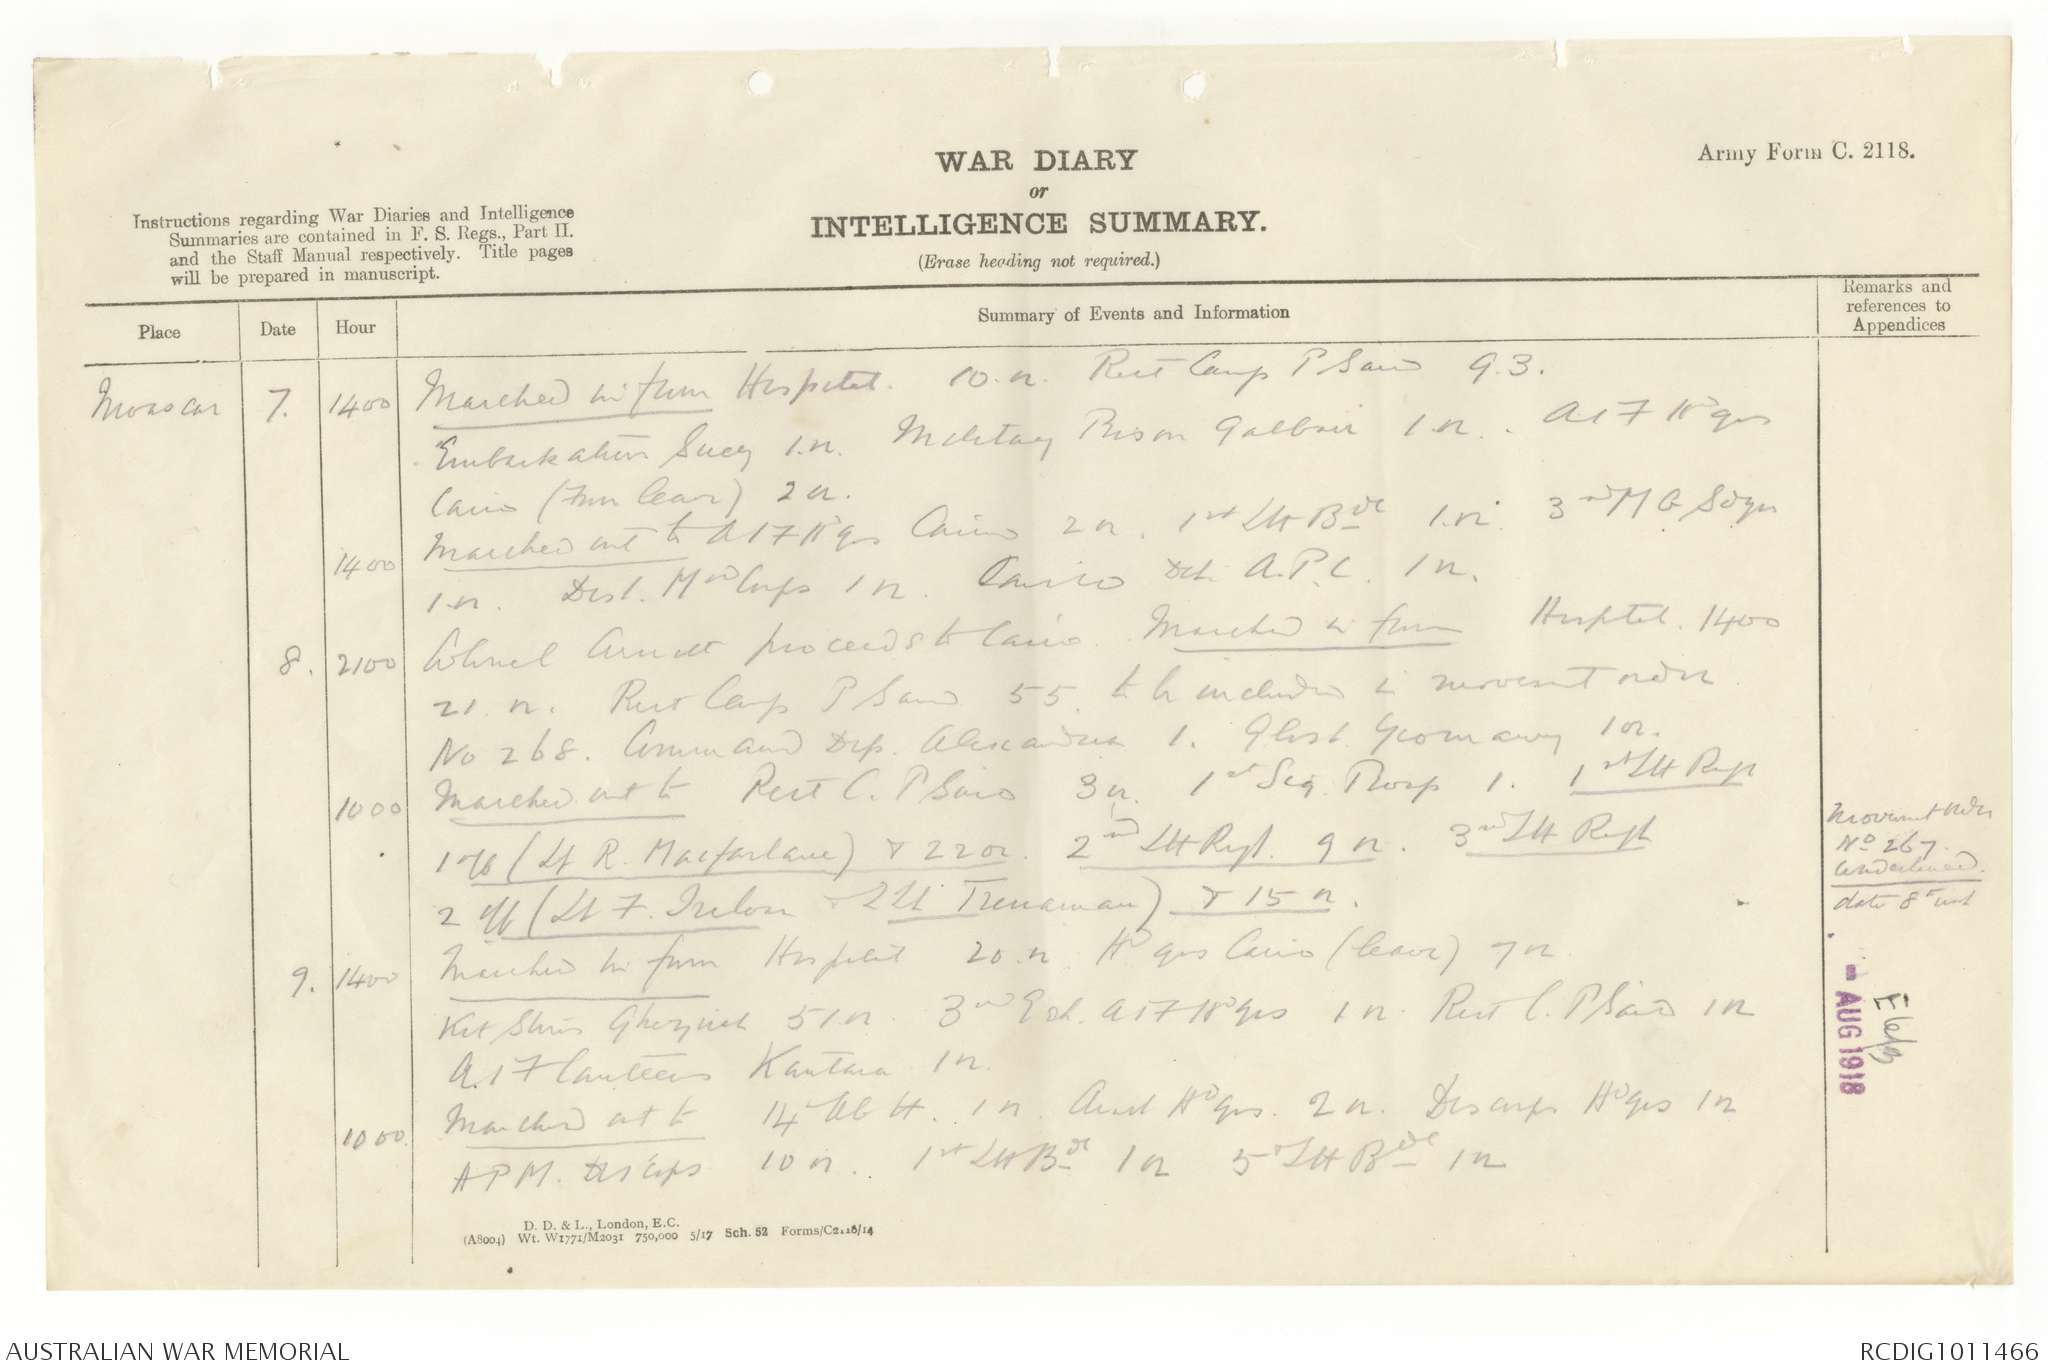 WAR DIARY
or
INTELLIGENCE SUMMARY.
(Erase heading not required.)
Army Form C. 2118.
Instructions regarding War Diaries and Intelligence
Summaries are contained in F. S. Regs., Part II.
and the Staff Manual respectively. Title pages
will be prepared in manuscript.
Place Date Hour Summary of Events and Information
Remarks and
references to
Appendices
Moascar 7. 1400 Marched in from Hospital. 10.or. Rest Camp P Said 93.
Embarkation Suez 1.or. Military Prison Gabbari 1.or. AIF Hdqrs
Cairo (from leave) 2 or.
1400 Marched out to AIF Hdqrs Cairo 2 or. 1st LH Bde 1.or. 3rd M G Sqn
1.or. Des. Mtd Corps 1 or. Cairo Det. A.P.C. 1 or.
8. 2100 Colonel Arnott proceeds to Cairo. Marched in from Hospital. 1400
21 or. Rest Camp P Said 55. to be included in movement order
No 268. Command Dep. Alexandria 1. Glost. Yeomanry 1 or.
1000 Marched out to Rest C. P Said 3 or. 1st Sig. Troop 1. 1st LH Regt
1 off (Lt R. Macfarlane) & 22 or. 2nd LH Regt. 9 or. 3rd LH Regt
2 off (Lt F. & 2Lt Trenaman) & 15 or.
Movement order
No 267.
underlined.
date 8th inst
9. 1400 Marched in from Hospital 20 or. Hdqrs Cairo (leave) 7 or.
Kit Stores Ghezireh 51 or. 3rd Ech. AIF Hdqrs 1 or. Rest C. P Said 1 or
A.I.F Canteens Kantara 1 or.
1000. Marched out to 14th H. 1 or. Hdqrs. 2 or. Descorps Hdqrs 1 or
A P M. Descorps 10 or. 1st LH Bde 1 or 5th LH Bde 1 or
AUG 1918
D. D. & L., London, E.C.
(A8004) Wt. W1771/M2031 750,000 5/17 Sch. 52 Forms/C2118/14
AUSTRALIAN WAR MEMORIAL
RCDIG1011466